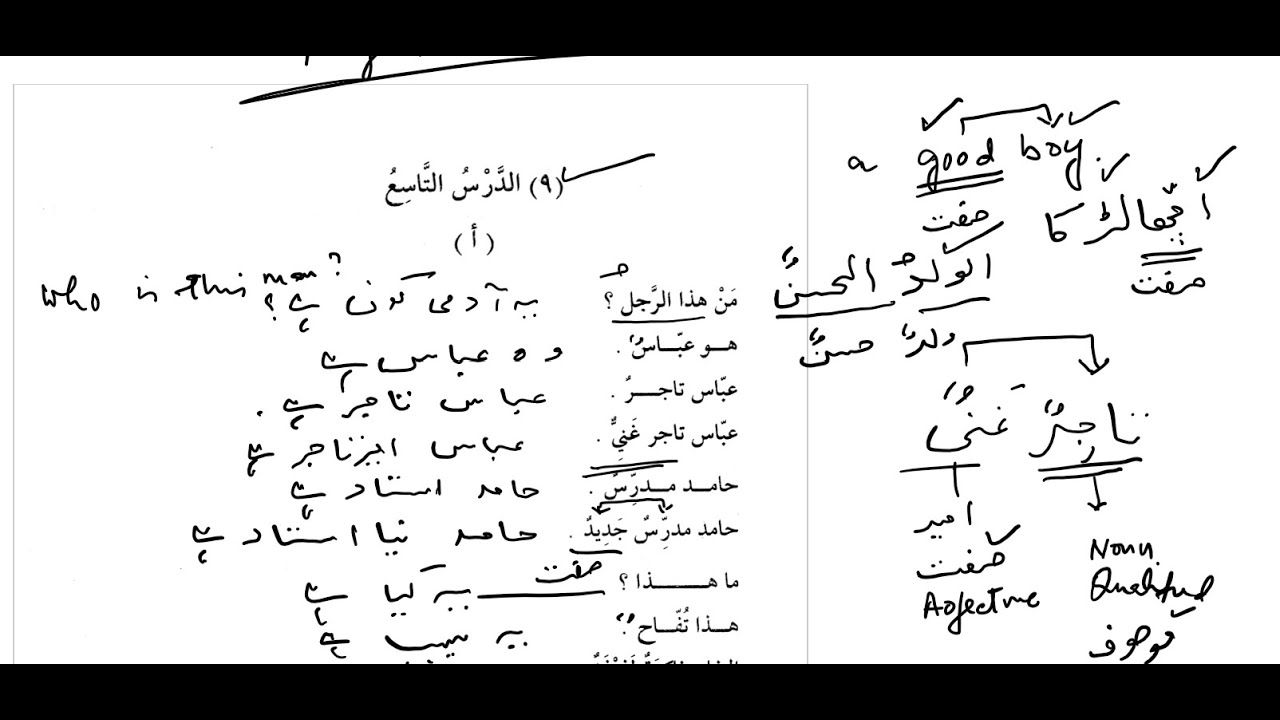 (٩) الدَّرْسُ التَّاسِعُ
(أ)
مَنْ هذا الرَّجل ؟ یہ آدمی کون ہے؟ who is this man?
هـو عبّـاسٌ . وہ عباس ہے
عبّاس تاجـرٌ . عباس تاجر ہے .
عبّاس تاجر غَنِيٌّ . عباس امیر تاجر ہے
حامـد مـدرِّسٌ . حامد استاد ہے
حامد مدرِّسٌ جَدِيدٌ . حامد نیا استاد ہے
صفت
ما هـــذا ؟ یہ کیا ہے
هـذا تُفّـاح . یہ سیب ہے
a good boy
صفت
اچھا لڑکا
صفت
الولدُ الحسنُ
ولدٌ حسنٌ
تاجرٌ غنیٌ
امیر
صفت
Adjective
Noun
Qualified
موصوف